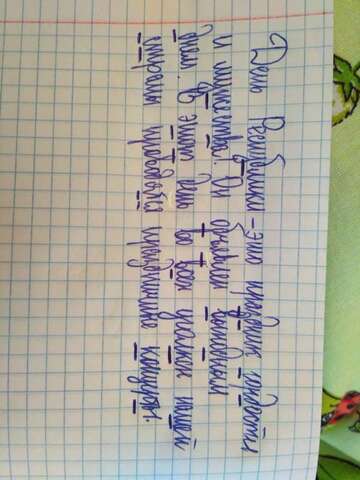 День Республики - это праздник свободы
и единства. Он объявлен выходным
днём. В этот день во всех уголках нашей
страны проводятся праздничные концерты.